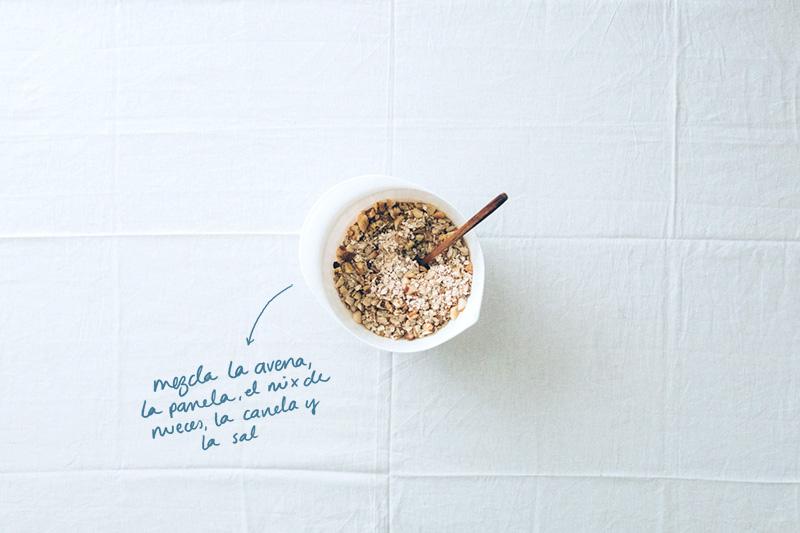 mezcla la avena,
la panela, el mix de
nueces, la canela y
la sal